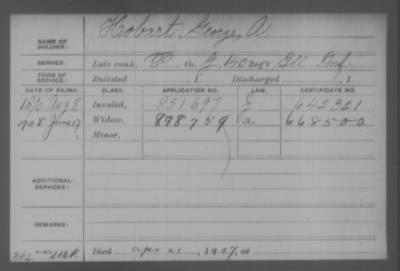 NAME OF SOLDIER: Hobart, George A
SERVICE: Late rank, P Co. G, 140 Reg't Ill Inf.
TERM OF SERVICE: Enlisted , Discharged , 1
DATE OF FILING. CLASS. APPLICATION NO. LAW. CERTIFICATE NO.
Aug 8 Invalid, 851697 642321
1908 June 17 Widow, 898759 a 668500
Minor,
ADDITIONAL SERVICES:
REMARKS:
Died Apr 21, 1907, at